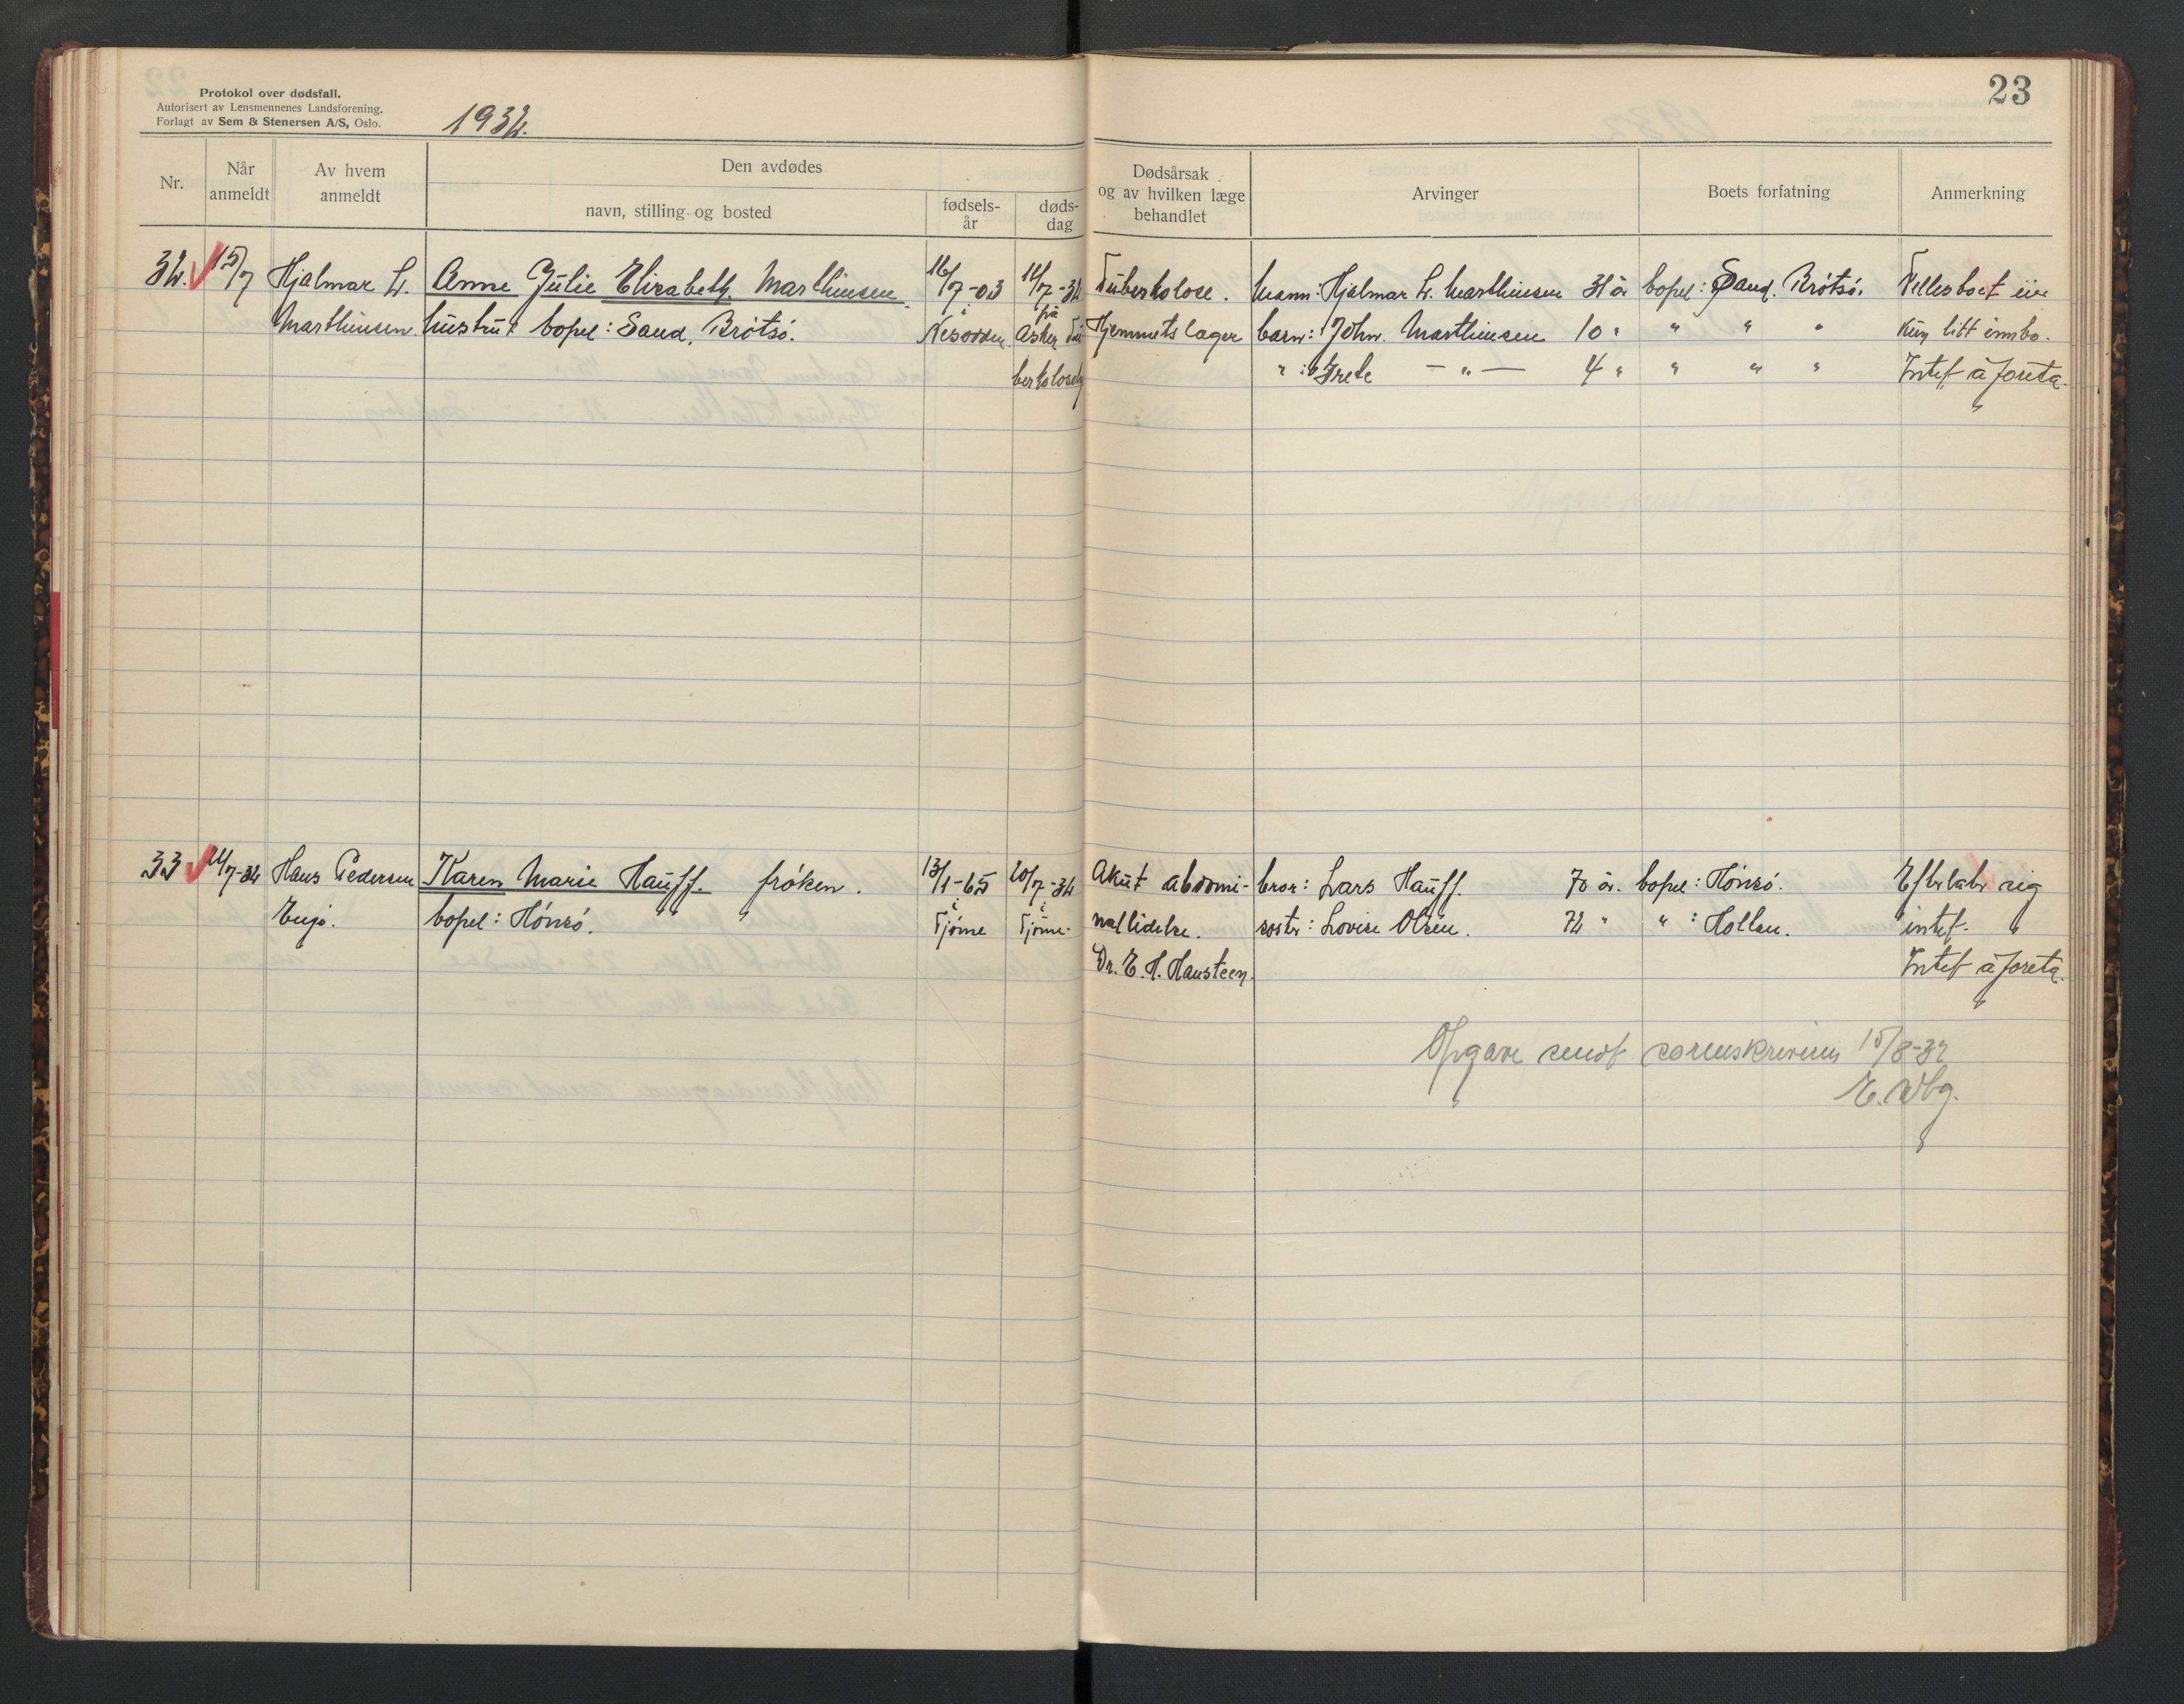 Protokol over dødsfall.
Autorisert av Lensmennenes Landsforening.
Forlagt av Sem & Stenersen A/S, Oslo.
1932.
23
Nr.
Når anmeldt
Av hvem anmeldt
Den avdødes
navn, stilling og bosted
fødsels-år
døds-dag
Dødsårsak og av hvilken læge behandlet
Arvinger
Boets forfatning
Anmerkning
32. 15/7 Hjalmar L. Anne Julie Elisabeth Marthinsen 16/7-03 14/7-32 Tuberkolose. Mann: Hjalmar L. Marthinsen 31 år bopel: Sand, Brötsö. Fellesboet eier
Marthinsen. hustru. bopel: Sand, Brötsö. i Nesodden på Asker Tu- Hjemmets læger barn: John Marthinsen 10 " " " " kun litt innbo.
berkolosehj " : Grete — " — 4 " " " " Intet å foreta.
33 21/7-32 Hans Pedersen Karen Marie Hauff. fröken. 13/1-65 20/7-32 Akut abdomi- bror: Lars Hauff. 70 år. bopel: Hönsö. Efterlater sig
Engö. bopel: Hönsö. i Tjöme i Tjöme. nallidelse. söster: Lovise Olsen. 72 " " : Holtan. intet.
Dr. E. H. Hansteen. Intet å foreta.
Opgave sendt sorenskriveren 15/8-32
E. Wbg.